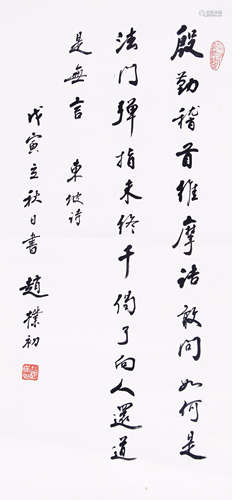 殷勤稽首維摩詰敢問如何是
法門彈指未終千偈了向人還道
是無言 東坡詩
戊寅立秋日書 趙樸初